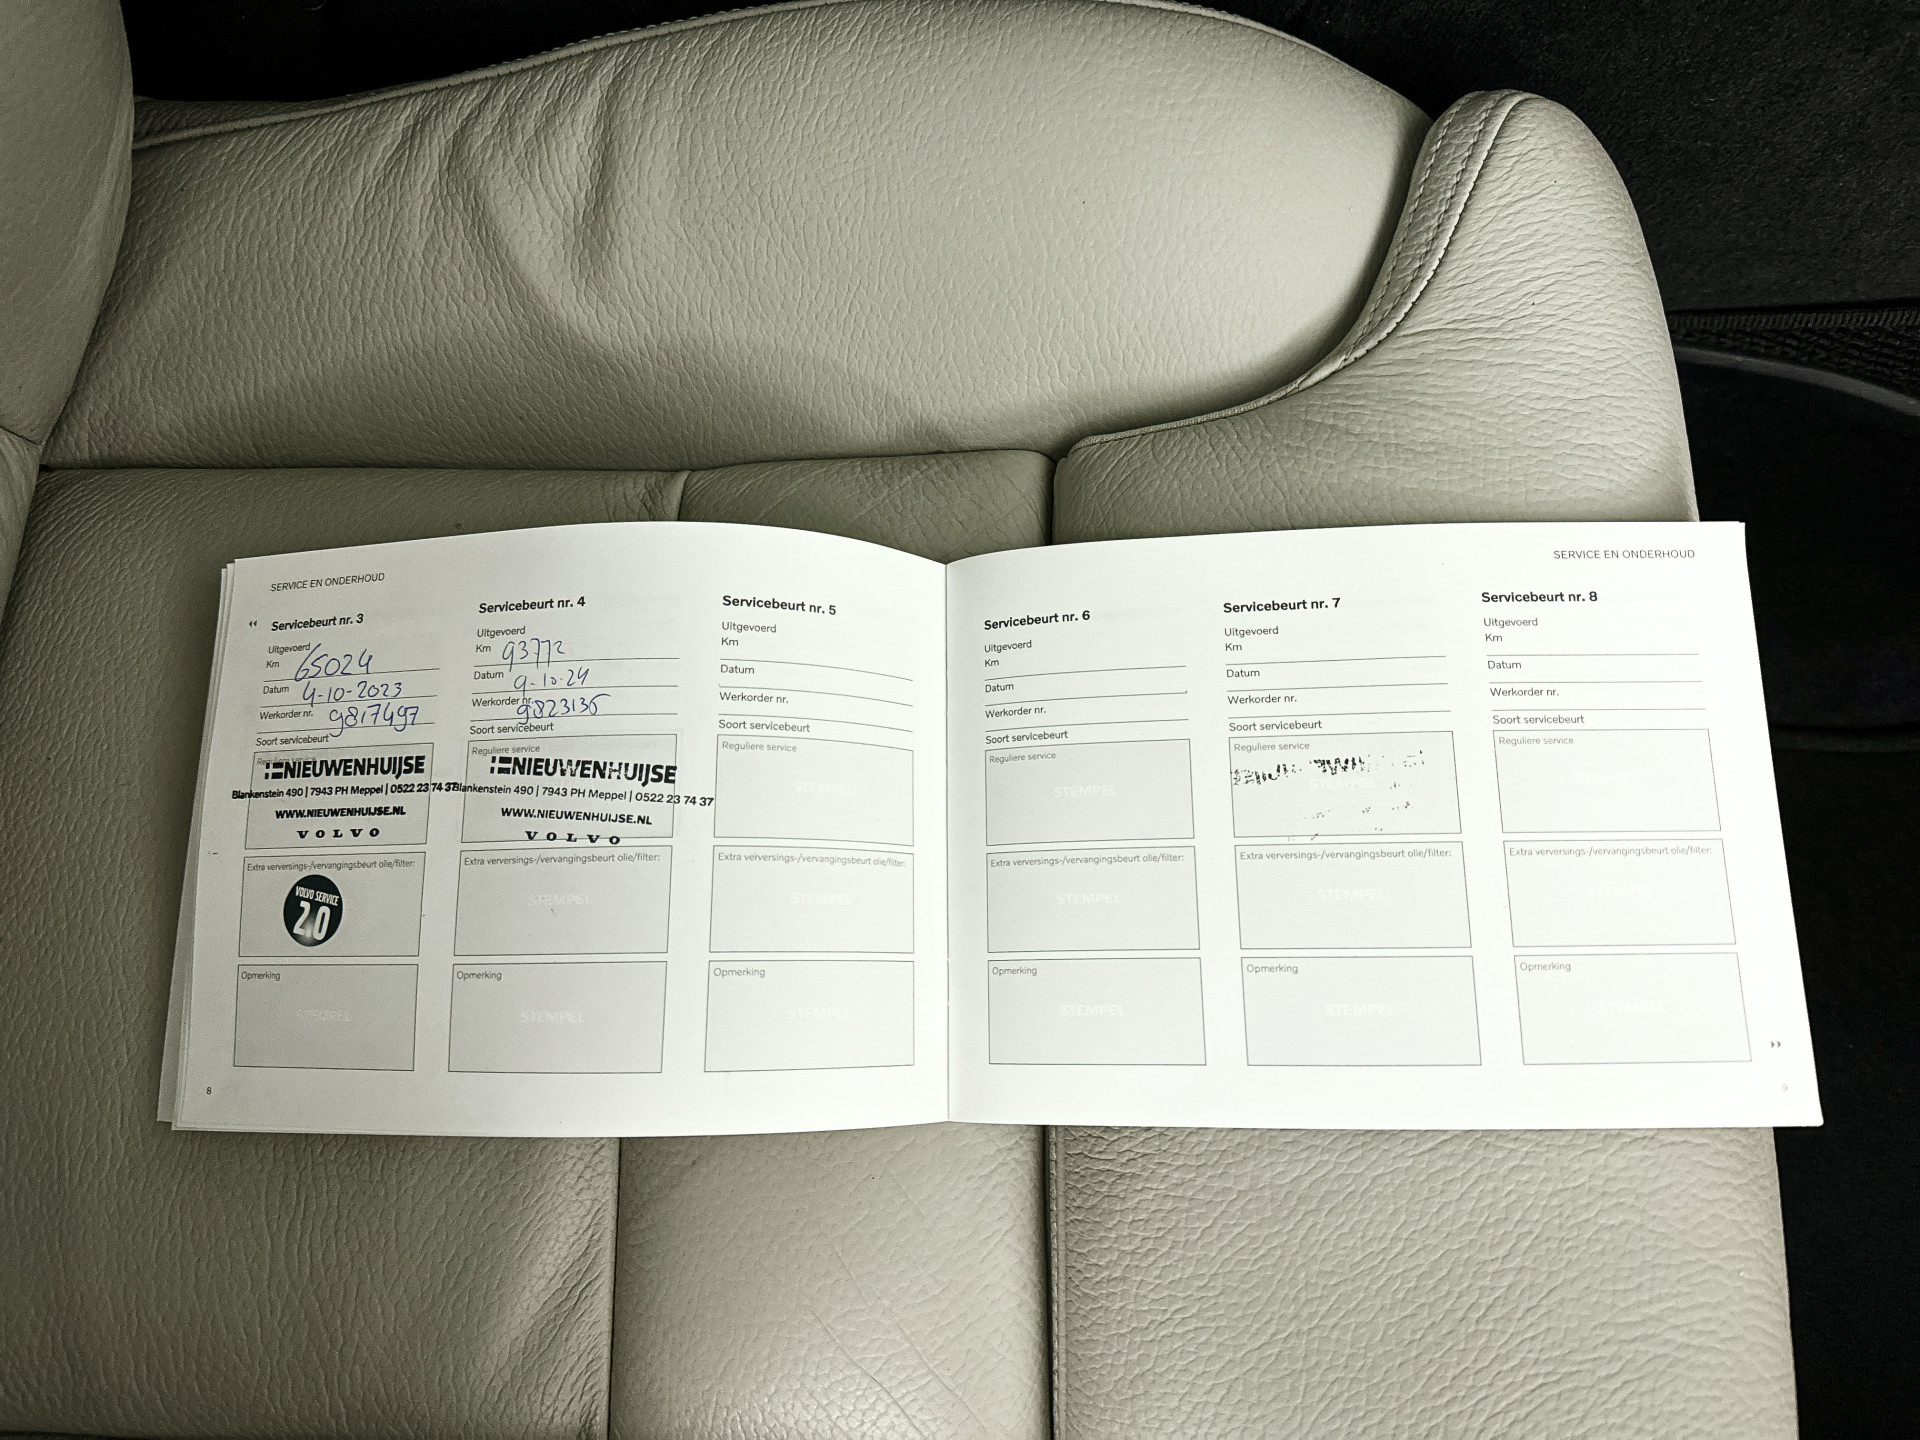 SERVICE EN ONDERHOUD
Servicebeurt nr. 3
Uitgevoerd
Km 65024
Datum 4-10-2023
Werkorder nr. 9817497
Soort servicebeurt
Reguliere service
NIEUWENHUIJSE
Blankenstein 490 | 7943 PH Meppel | 0522 23 74 37
WWW.NIEUWENHUIJSE.NL
VOLVO
Extra verversings-/vervangingsbeurt olie/filter:
VOLVO SERVICE
2.0
Opmerking
STEMPEL
8
Servicebeurt nr. 4
Uitgevoerd
Km 93772
Datum 9-10-24
Werkorder nr. 9823135
Soort servicebeurt
Reguliere service
NIEUWENHUIJSE
Blankenstein 490 | 7943 PH Meppel | 0522 23 74 37
WWW.NIEUWENHUIJSE.NL
VOLVO
Extra verversings-/vervangingsbeurt olie/filter:
STEMPEL
Opmerking
STEMPEL
Servicebeurt nr. 5
Uitgevoerd
Km
Datum
Werkorder nr.
Soort servicebeurt
Reguliere service
STEMPEL
Extra verversings-/vervangingsbeurt olie/filter:
STEMPEL
Opmerking
STEMPEL
SERVICE EN ONDERHOUD
Servicebeurt nr. 6
Uitgevoerd
Km
Datum
Werkorder nr.
Soort servicebeurt
Reguliere service
STEMPEL
Extra verversings-/vervangingsbeurt olie/filter:
STEMPEL
Opmerking
STEMPEL
Servicebeurt nr. 7
Uitgevoerd
Km
Datum
Werkorder nr.
Soort servicebeurt
Reguliere service
STEMPEL
Extra verversings-/vervangingsbeurt olie/filter:
STEMPEL
Opmerking
STEMPEL
Servicebeurt nr. 8
Uitgevoerd
Km
Datum
Werkorder nr.
Soort servicebeurt
Reguliere service
STEMPEL
Extra verversings-/vervangingsbeurt olie/filter:
STEMPEL
Opmerking
STEMPEL
9